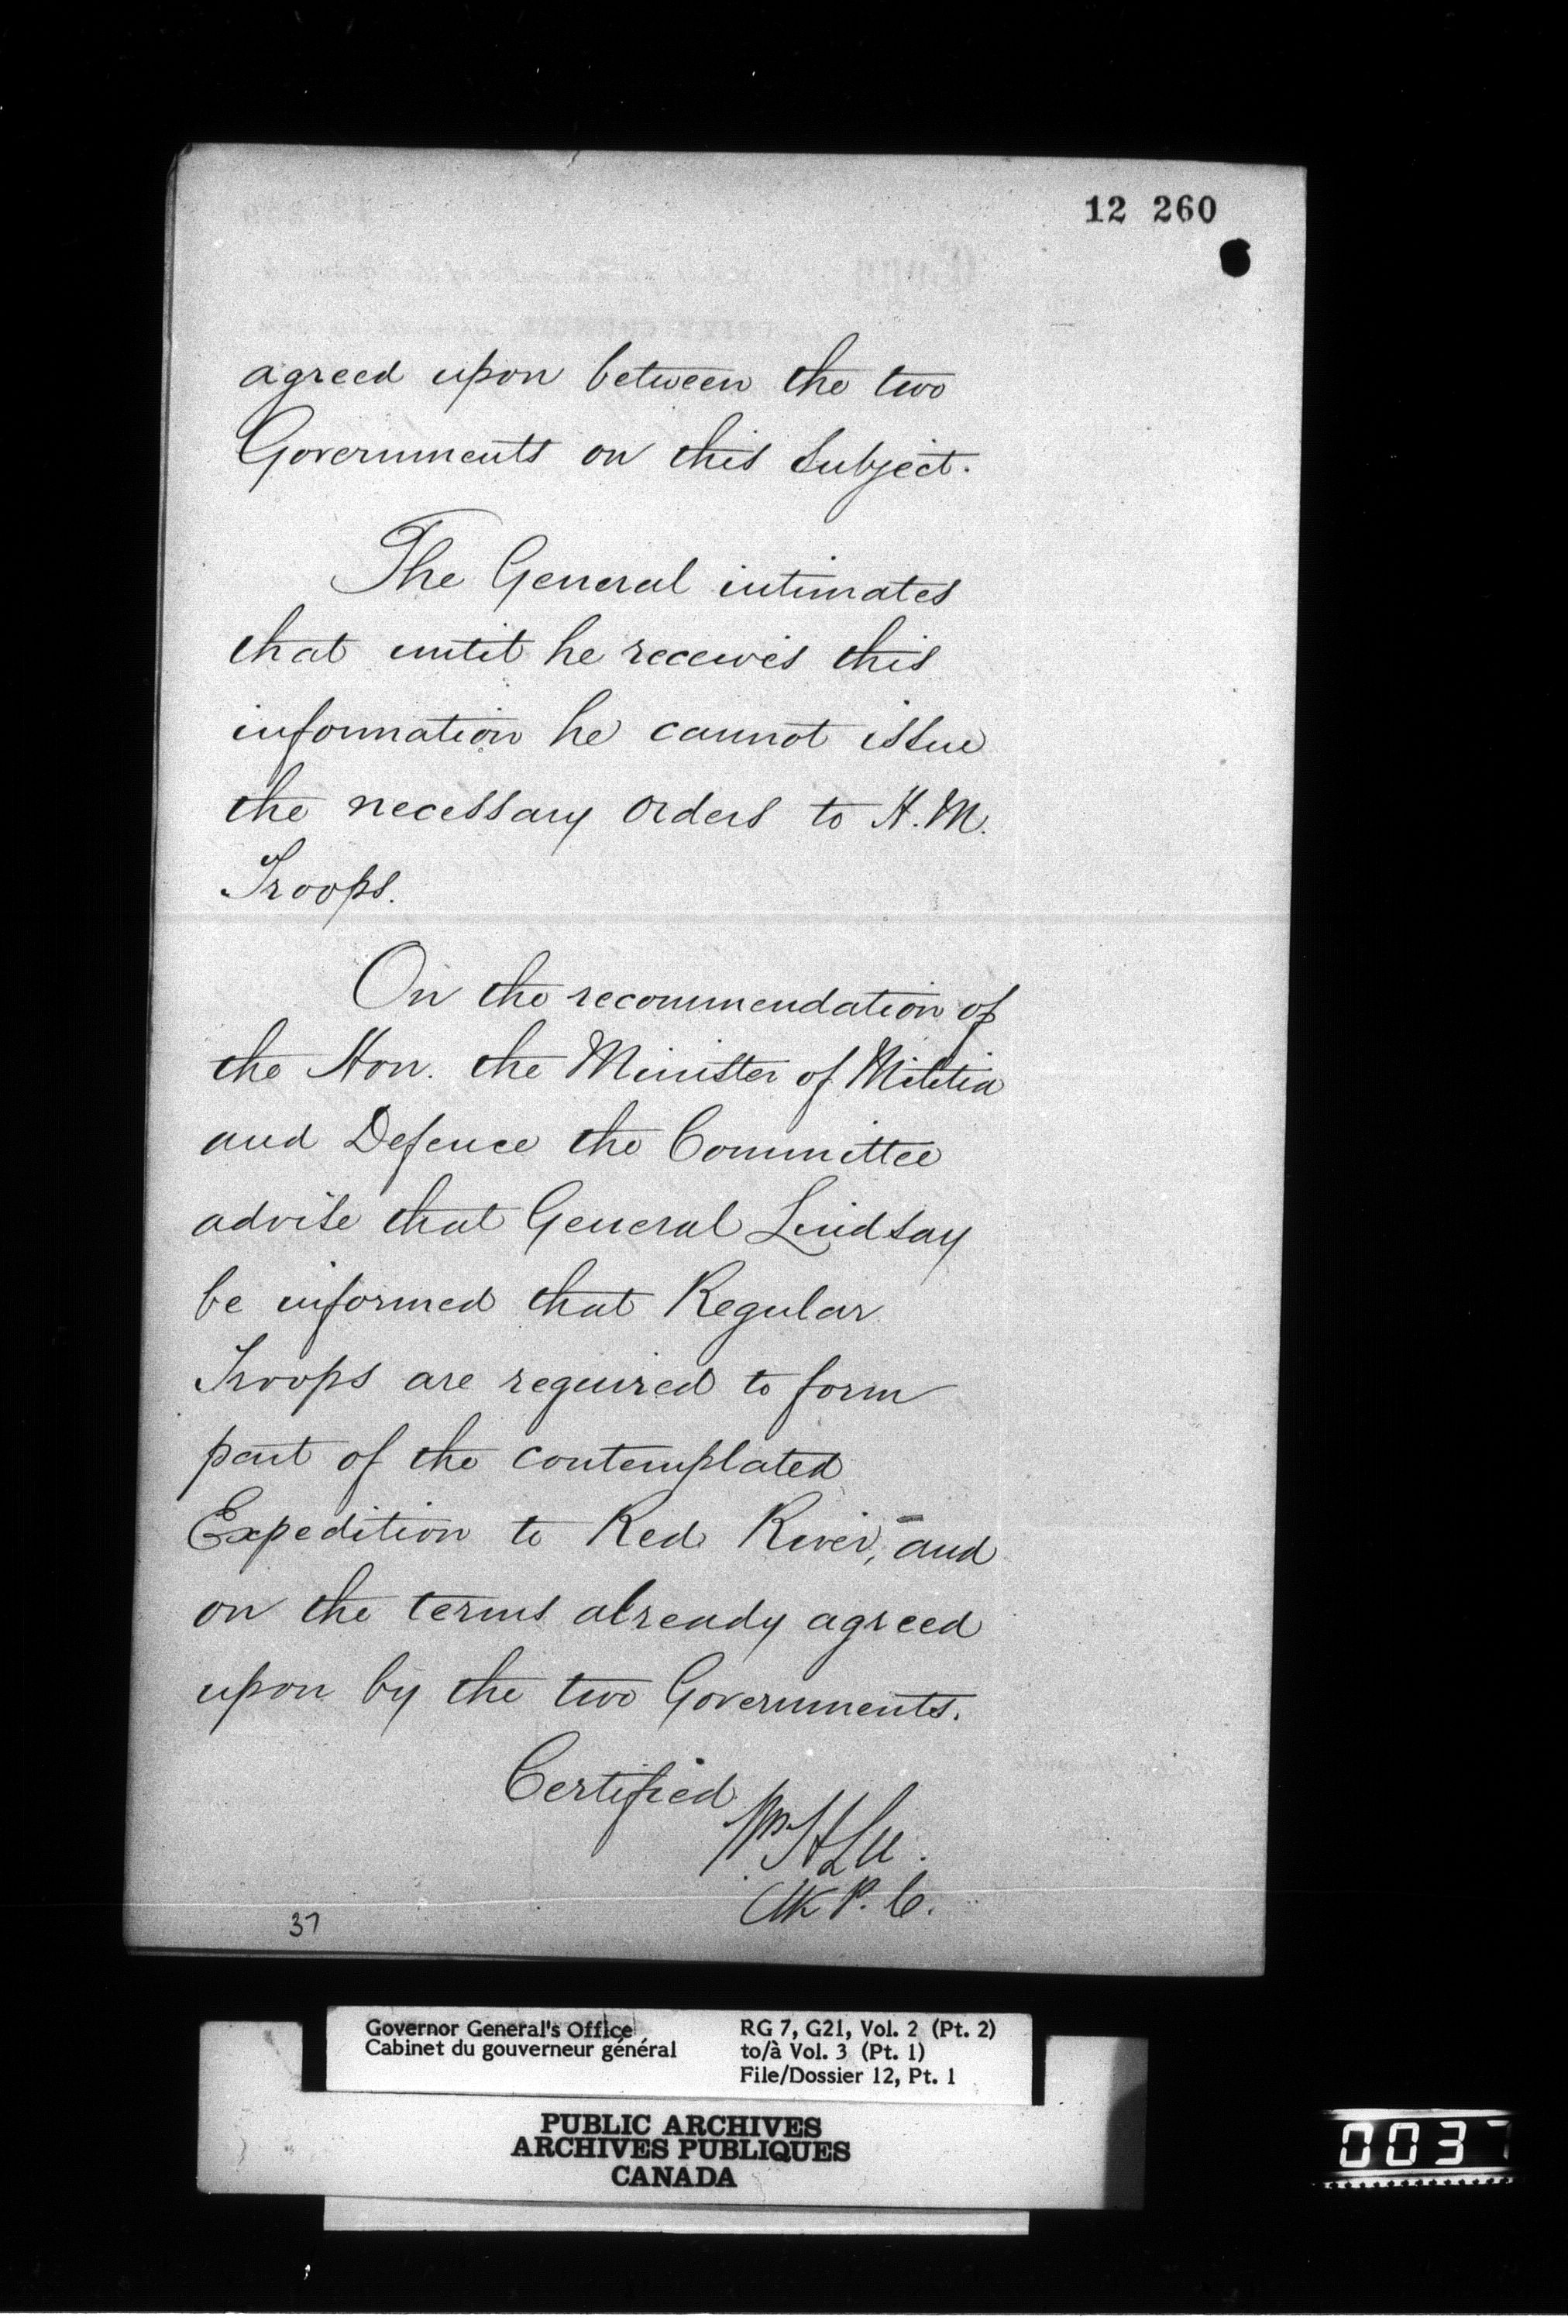 12 260
agreed upon between the two
Governments on this subject.
The General intimates
that until he receives this
information he cannot issue
the necessary orders to H.M.
Troops.
On the recommendation of
the Hon. the Minister of Militia
and Defence the Committee
advise that General Lindsay
be informed that Regular
Troops are required to form
part of the contemplated
Expedition to Red River, and
on the terms already agreed
upon by the two Governments.
Certified
Wm H Lee.
Clk P. C.
37
Governor General's Office
Cabinet du gouverneur général
RG 7, G21, Vol. 2 (Pt. 2)
to/à Vol. 3 (Pt. 1)
File/Dossier 12, Pt. 1
PUBLIC ARCHIVES
ARCHIVES PUBLIQUES
CANADA
0037